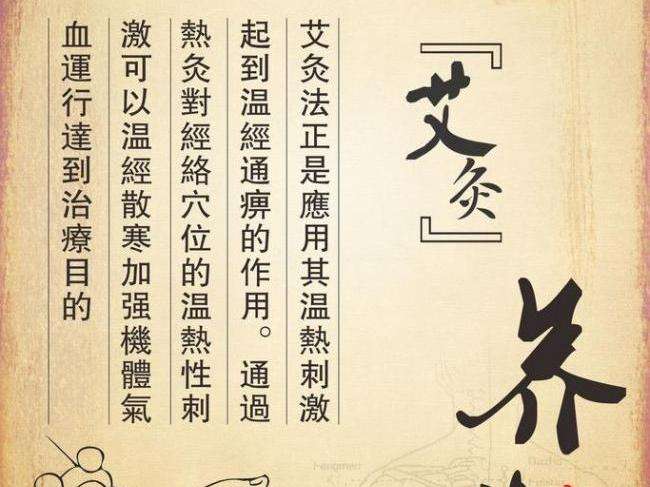 『艾灸』
养
艾灸法正是應用其温熱刺激
起到温經通痹的作用。通過
熱灸對經絡穴位的温熱性刺
激可以温經散寒加强機體氣
血運行達到治療目的